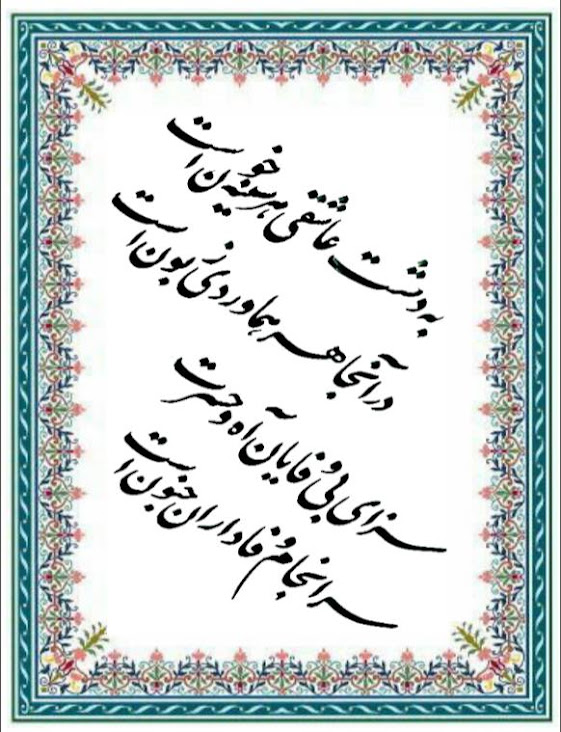 به دشت عاشقی هر سینه خون است
در آنجا هر هماوردی زبون است
سزای بی وفایان آه و حسرت
سرانجام وفاداران جنون است